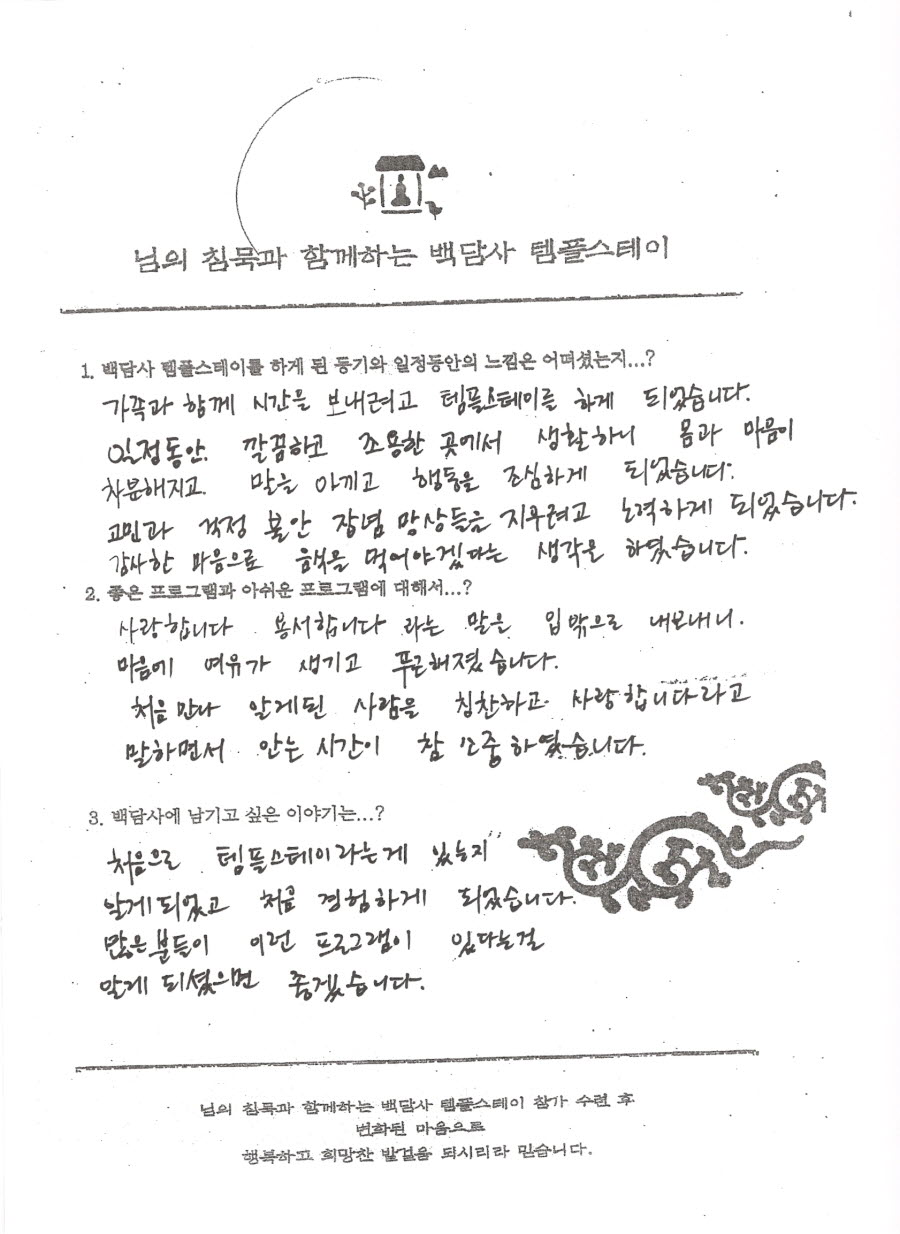 님의 침묵과 함께하는 백담사 템플스테이
1. 백담사 템플스테이를 하게 된 동기와 일정동안의 느낌은 어떠셨는지...?
가족과 함께 시간을 보내려고 템플스테이를 하게 되었습니다.
일정동안. 깔끔하고 조용한 곳에서 생활하니 몸과 마음이
차분해지고. 말을 아끼고 행동을 조심하게 되었습니다.
고민과 걱정 불안 잡념 망상들을 지우려고 노력하게 되었습니다.
감사한 마음으로 음식을 먹어야겠다는 생각은 하였습니다.
2. 좋은 프로그램과 아쉬운 프로그램에 대해서...?
사랑합니다 용서합니다 라는 말은 입 밖으로 내보내니.
마음에 여유가 생기고 푸근해졌습니다.
처음 만나 알게된 사람을 칭찬하고 사랑합니다라고
말하면서 안는 시간이 참 소중하였습니다.
3. 백담사에 남기고 싶은 이야기는...?
처음으로 템플스테이라는게 있는지
알게되었고 처음 경험하게 되었습니다.
많은분들이 이런 프로그램이 있다는걸
알게 되셨으면 좋겠습니다.
님의 침묵과 함께하는 백담사 템플스테이 참가 수련 후
변화된 마음으로
행복하고 희망찬 발걸음 되시리라 믿습니다.